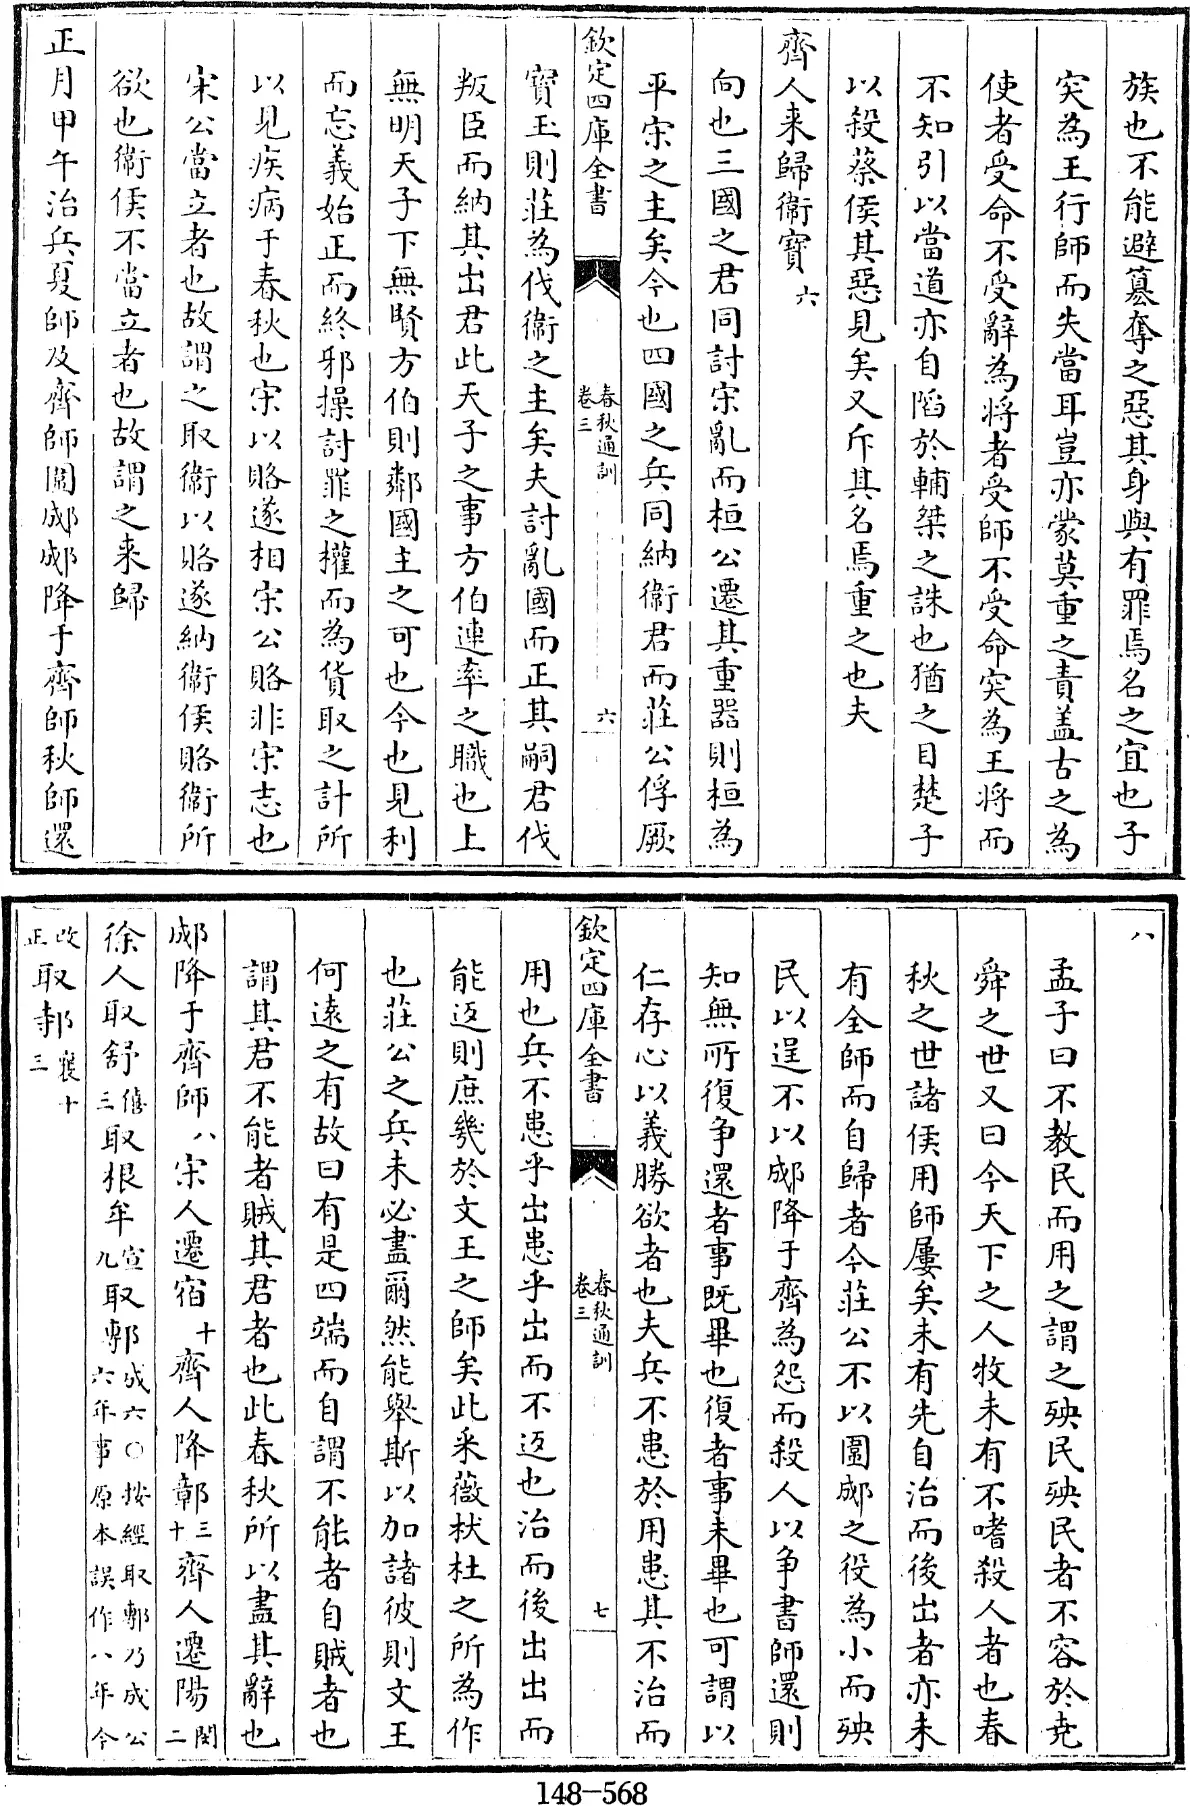 族也不能避簒奪之惡其身與有罪焉名之宜也子
突為王行師而失當耳豈亦蒙莫重之責盖古之為
使者受命不受辭為將者受師不受命突為王將而
不知引以當道亦自陷於輔桀之誅也猶之目楚子
以殺蔡侯其惡見矣又斥其名焉重之也夫
齊人来歸衞寳六
向也三國之君同討宋亂而桓公遷其重器則桓為
平宋之主矣今也四國之兵同納衞君而莊公俘厥
欽定四庫全書
春秋通訓
卷三
六
寳玉則莊為伐衞之主矣夫討亂國而正其嗣君伐
叛臣而納其出君此天子之事方伯連率之職也上
無明天子下無賢方伯則鄰國主之可也今也見利
而忘義始正而終邪操討罪之權而為貨取之計所
以見疾病于春秋也宋以賂遂相宋公賂非宋志也
宋公當立者也故謂之取衞以賂遂納衞侯賂衞所
欲也衞侯不當立者也故謂之来歸
正月甲午治兵夏師及齊師圍郕郕降于齊師秋師還
八
孟子曰不教民而用之謂之殃民殃民者不容於堯
舜之世又曰今天下之人牧未有不嗜殺人者也春
秋之世諸侯用師屢矣未有先自治而後出者亦未
有全師而自歸者今莊公不以圍郕之役為小而殃
民以逞不以郕降于齊為怨而殺人以争書師還則
知無所復争還者事既畢也復者事未畢也可謂以
仁存心以義勝欲者也夫兵不患於用患其不治而
欽定四庫全書
春秋通訓
卷三
七
用也兵不患乎出患乎出而不返也治而後出出而
能返則庶幾於文王之師矣此采薇杕杜之所為作
也莊公之兵未必盡爾然能舉斯以加諸彼則文王
何遠之有故曰有是四端而自謂不能者自賊者也
謂其君不能者賊其君者也此春秋所以盡其辭也
郕降于齊師八宋人遷宿十齊人降鄣三十齊人遷陽閔二
徐人取舒僖三取根牟宣九取鄟成六〇按經取鄟乃成公六年事原本誤作八年今
改正取邿襄十三
148-568